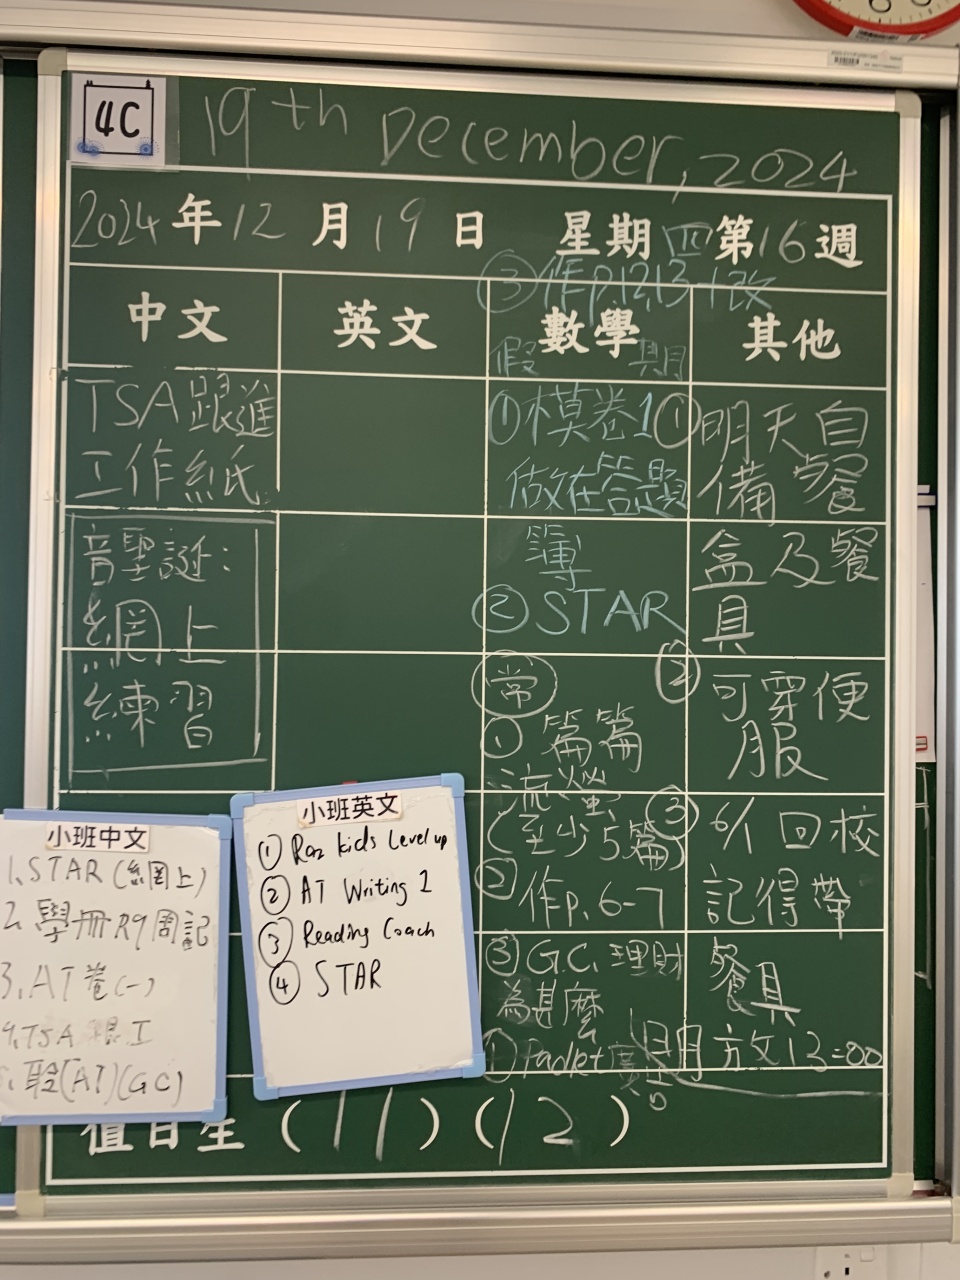 4C
19th December, 2024
2024年12月19日 星期四第16週
③作p.12,13 改
中文
英文
數學
其他
TSA跟進
工作紙
音聖誕：
網上
練習
假期
①模卷1
做在答題
簿
②STAR
常
①篇篇
流螢
(至少5篇)
②作p.6-7
③G.C.理財
為甚麼
①Padlet
①明天自
備餐
盒及餐
具
②可穿便
服
③6/1回校
記得帶
餐具
放13:00
小班中文
1.STAR(網上)
2.學冊R9周記
3.AT卷(一)
4.TSA跟工
聆(AT)(GC)
小班英文
① Raz kids Level up
② AT Writing 2
③ Reading Coach
④ STAR
值日生(11)(12)